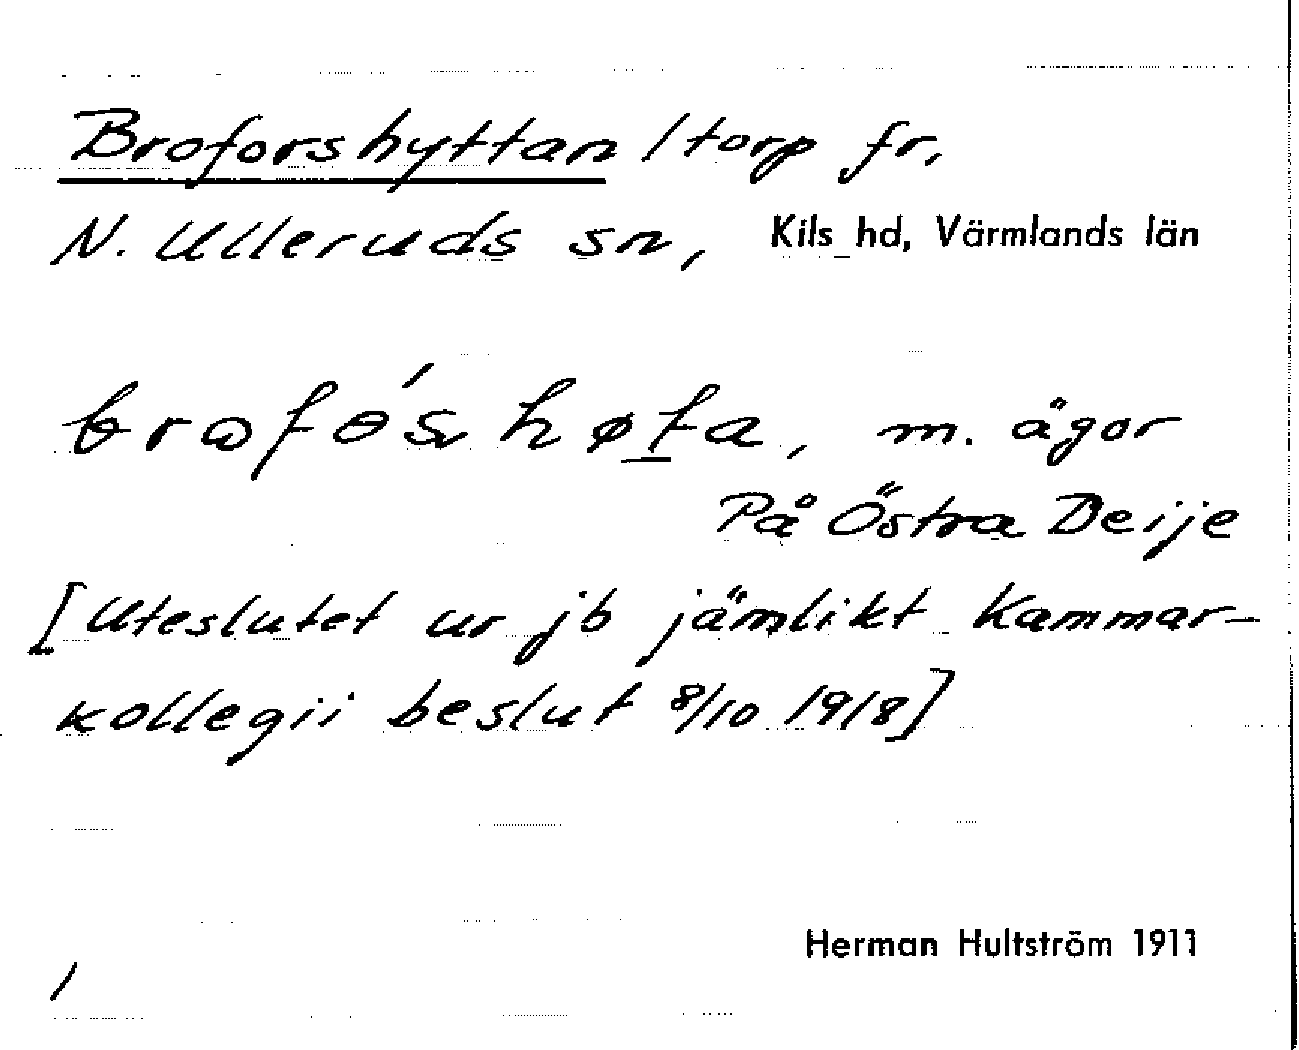 Broforshyttan / torp fr,
N. Ulleruds sn, Kils hd, Värmlands län
m. ägor
På Östra Deije
[Uteslutet ur jb jämlikt Kammar-
kollegii beslut 8/10 1918]
Herman Hultström 1911
/